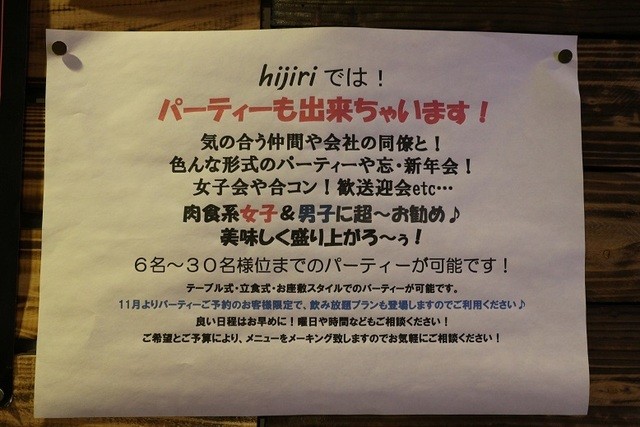 hijiri では！
パーティーも出来ちゃいます！
気の合う仲間や会社の同僚と！
色んな形式のパーティーや忘・新年会！
女子会や合コン！歓送迎会etc…
肉食系女子＆男子に超～お勧め♪
美味しく盛り上がろ～ぅ！
６名～３０名様位までのパーティーが可能です！
テーブル式・立食式・お座敷スタイルでのパーティーが可能です。
11月よりパーティーご予約のお客様限定で、飲み放題プランも登場しますのでご利用ください♪
良い日程はお早めに！曜日や時間などもご相談ください！
ご希望とご予算により、メニューをメーキング致しますのでお気軽にご相談ください！